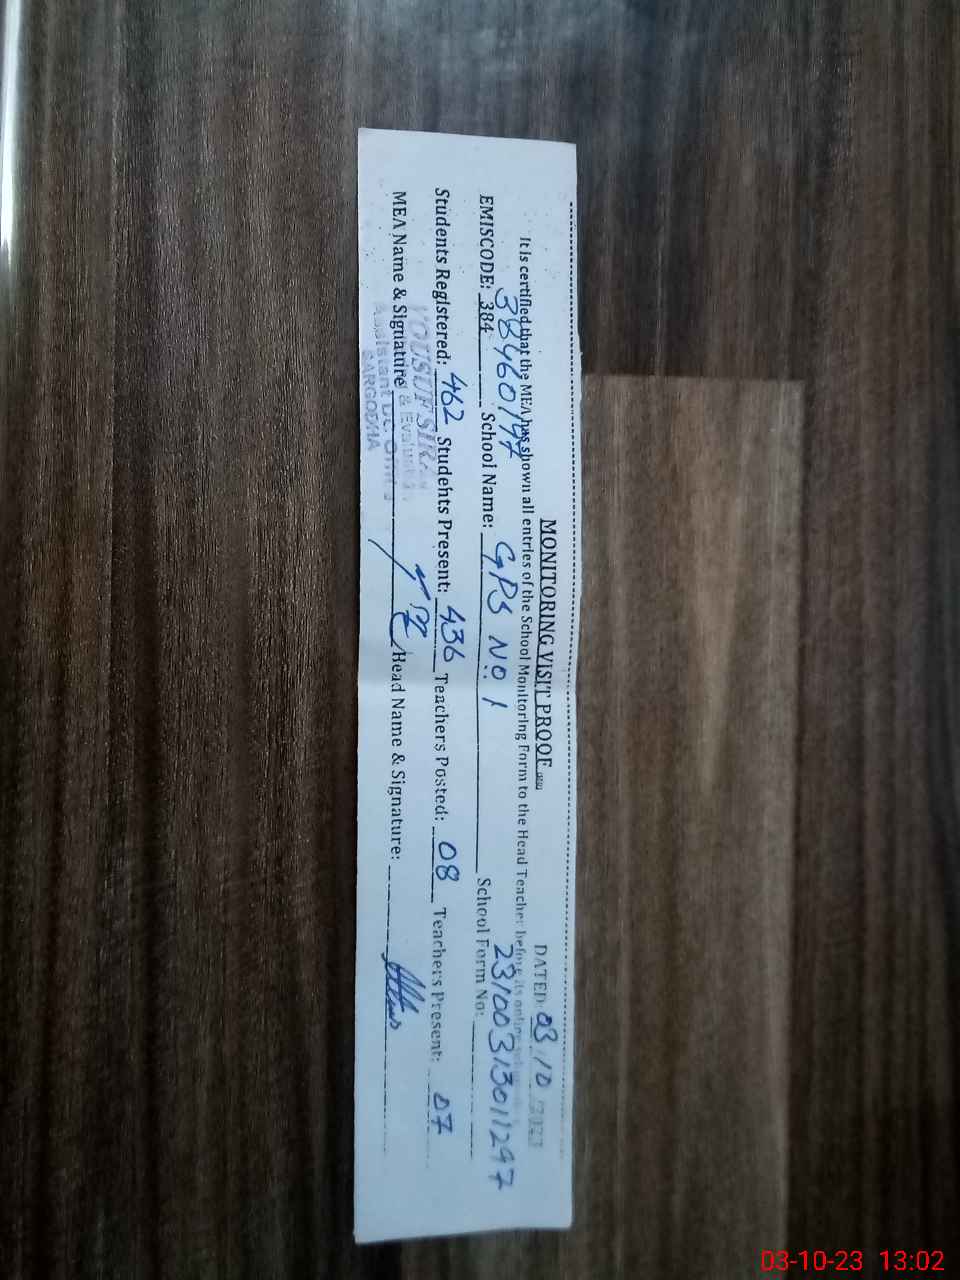 MONITORING VISIT PROOF
DATED: 03.10.2023
It is certified that the MEA has shown all entries of the School Monitoring Form to the Head Teacher before its online
38460197
23100313011297
EMISCODE: 384 School Name: GPS NO. 1 School Form No:
Students Registered: 462 Students Present: 436 Teachers Posted: 08 Teachers Present: 07
MEA Name & Signature Head Name & Signature:
YOUSUF
& Evaluation
Assistant
SARGODHA
03-10-23 13:02